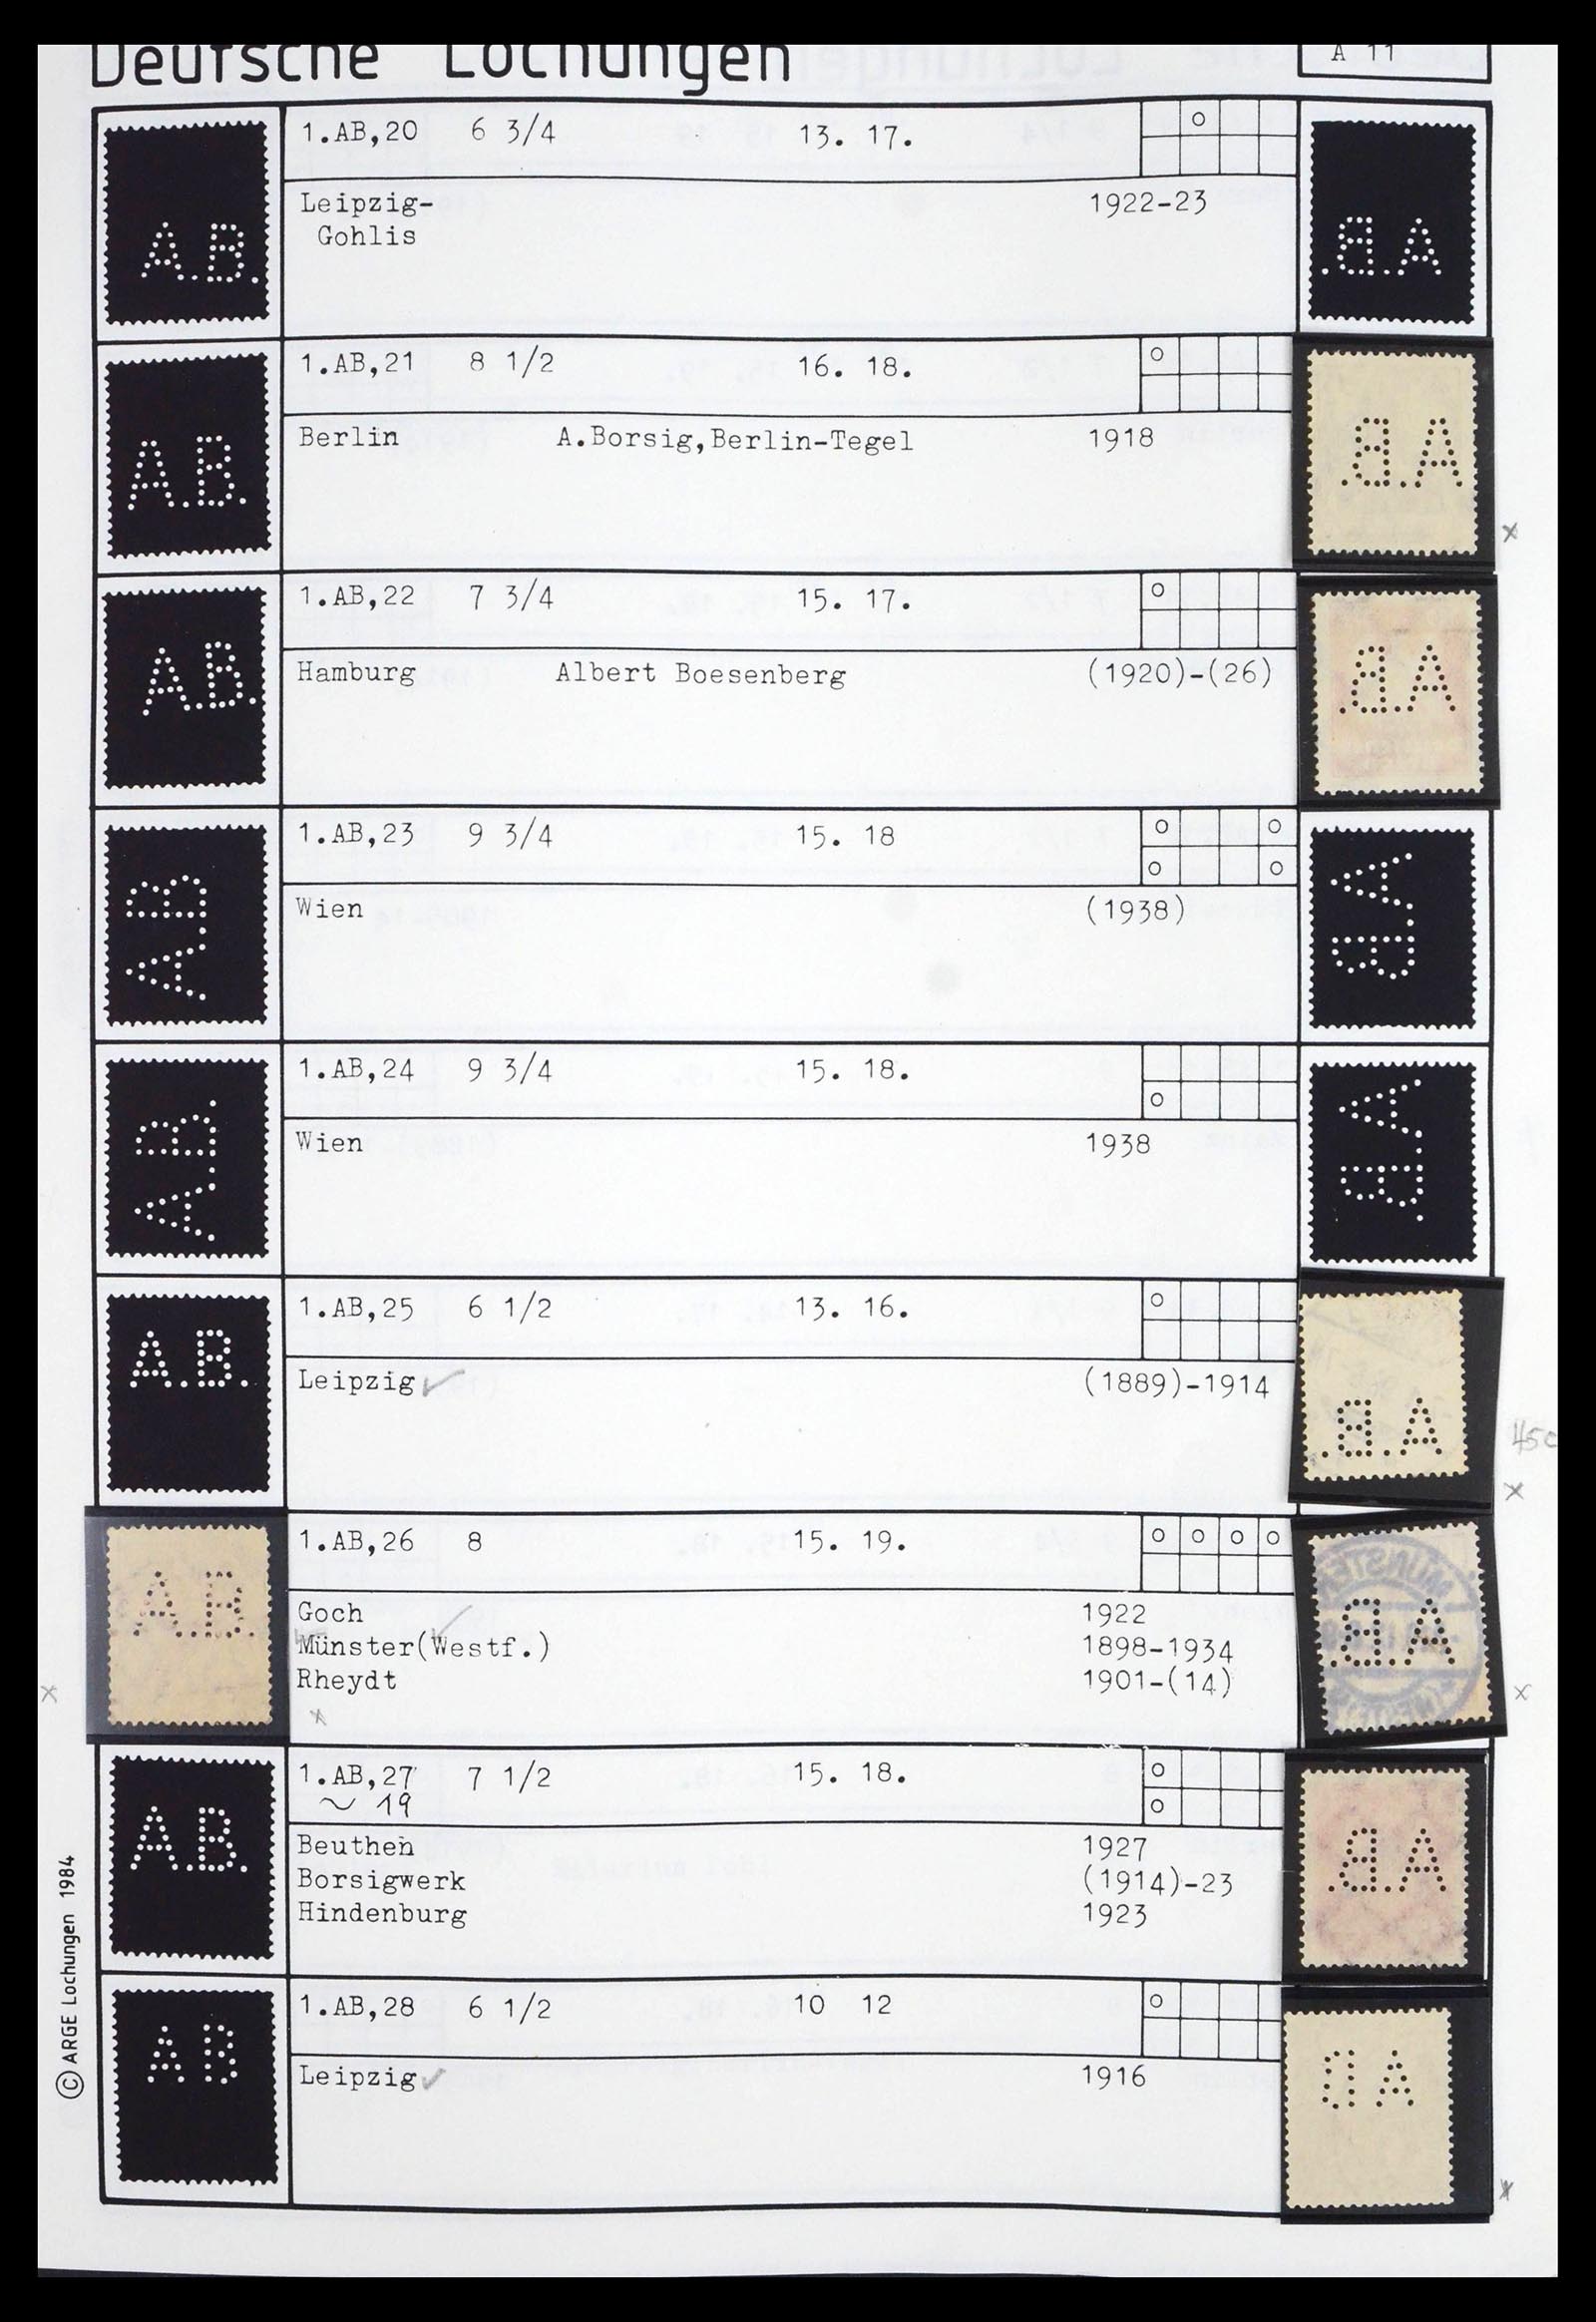 Deutsche Lochungen
A 11
1.AB,20 6 3/4 13. 17.
Leipzig- 1922-23
Gohlis
A.B.
A.B.
1.AB,21 8 1/2 16. 18.
Berlin A.Borsig,Berlin-Tegel 1918
A.B.
A.B.
x
1.AB,22 7 3/4 15. 17.
Hamburg Albert Boesenberg (1920)-(26)
A.B.
A.B.
1.AB,23 9 3/4 15. 18
Wien (1938)
A.B
A.B
1.AB,24 9 3/4 15. 18.
Wien 1938
A.B.
A.B.
1.AB,25 6 1/2 13. 16.
Leipzig (1889)-1914
A.B.
A.B.
x
1.AB,26 8 15. 19.
Goch 1922
Münster(Westf.) 1898-1934
Rheydt 1901-(14)
A.B.
A.B.
MÜNSTER
x
x
x
1.AB,27 7 1/2 15. 18.
~ 19
Beuthen 1927
Borsigwerk (1914)-23
Hindenburg 1923
A.B.
A.B.
1.AB,28 6 1/2 10 12
Leipzig 1916
A B
A B
x
© ARGE Lochungen 1984